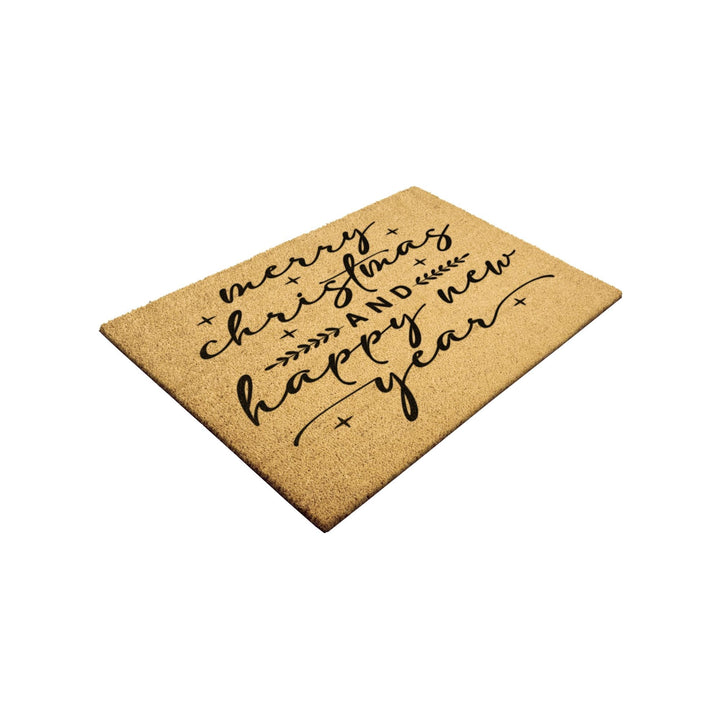 merry
christmas
AND
happy new
year